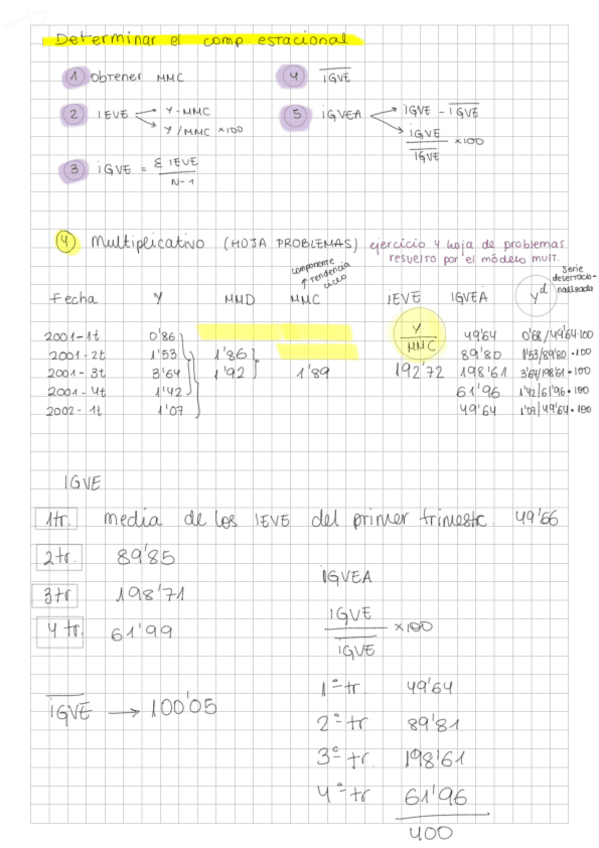 Determinar el comp. estacional
1 Obtener MMC
4 IGVE
2 IEVE Y - MMC
Y / MMC x100
5 IGVEA IGVE - IGVE
IGVE / IGVE x100
3 IGVE = Σ IEVE / N-1
4 Multiplicativo (HOJA PROBLEMAS) ejercicio 4 hoja de problemas
resuelto por el módelo mult.
componente
↑ tendencia
ciclo
Serie
desestacio-
nalizada
Fecha Y MMD MMC IEVE IGVEA Y d
Y / MMC
2001-1t 0'86 49'64 0'68/49'64·100
2001-2t 1'53 1'86 89'80 1'53/89'80·100
2001-3t 3'64 1'92 1'89 192'72 198'61 3'64/198'61·100
2001-4t 1'42 61'96 1'42/61'96·100
2002-1t 1'07 49'64 1'07/49'64·100
IGVE
1tr. media de los IEVE del primer trimestre. 49'66
2tr. 89'85
3tr 198'71
4 tr. 61'99
IGVE → 100'05
IGVEA
IGVE / IGVE x100
1º tr. 49'64
2º tr 89'81
3º tr. 198'61
4º tr 61'96
400